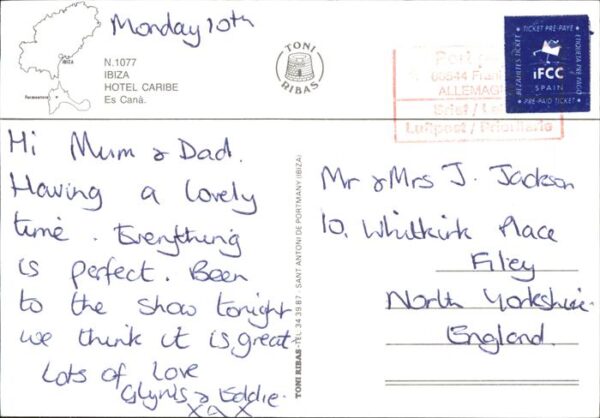 Monday 10th
IBIZA
Formentera
N.1077
IBIZA
HOTEL CARIBE
Es Caná.
TONI
RIBAS
Port
60544 Fran
ALLEMAG
Brief / Le
Luftpost / Prioritaire
TICKET PRE-PAYE
BEZAHLTES TICKET
ETIQUETA PRE-PAGO
iFCC
SPAIN
PRE-PAID TICKET
Hi Mum & Dad.
Having a lovely
time. Everything
is perfect. Been
to the show tonight
we think it is great
Lots of Love
Glynis & Eddie.
xxx
TONI RIBAS - TEL. 34.39.87 - SANT ANTONI DE PORTMANY (IBIZA)
Mr & Mrs J. Jackson
10, Whitkirk Place
Filey
North Yorkshire.
England.